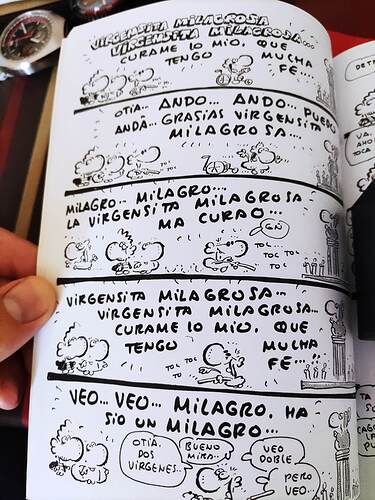 VIRGENSITA MILAGROSA
VIRGENSITA MILAGROSA...
CURAME LO MIO, QUE
TENGO MUCHA
FE...
OTIA.. ANDO... ANDO.. PUEDO
ANDÁ.. GRASIAS VIRGENSITA
MILAGROSA...
MILAGRO.. MILAGRO...
LA VIRGENSITA MILAGROSA
MA CURAO...
TOC..
TOC TOC
TOC
VIRGENSITA MILAGROSA..
VIRGENSITA MILAGROSA...
CURAME LO MIO, QUE
TENGO MUCHA
FE...
TOC
TOC
VEO... VEO... MILAGRO, HA
SIO UN MILAGRO...
OTIA,
DOS
VIRGENES..
BUENO
MIRA..
VEO
DOBLE,
PERO
VEO..